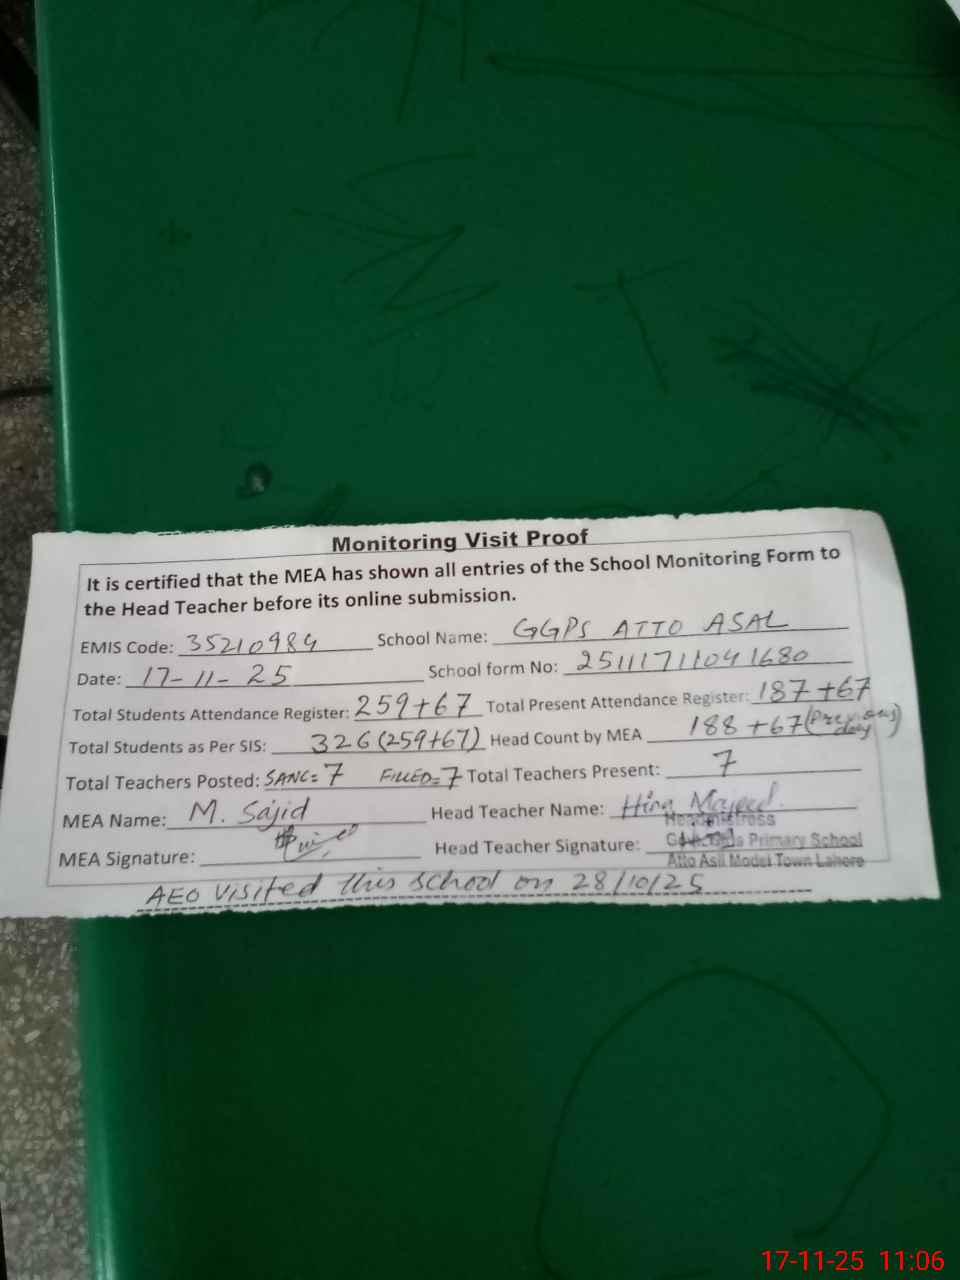 Monitoring Visit Proof
It is certified that the MEA has shown all entries of the School Monitoring Form to
the Head Teacher before its online submission.
EMIS Code: 35210984 School Name: GGPS ATTO ASAL
Date: 17-11-25 School form No: 25111711041680
Total Students Attendance Register: 259+67 Total Present Attendance Register: 187+67
Total Students as Per SIS: 326(259+67) Head Count by MEA 188+67(Previous day)
Total Teachers Posted: SANC=7 FILLED=7 Total Teachers Present: 7
MEA Name: M. Sajid Head Teacher Name: Hina Majeed.
MEA Signature: Head Teacher Signature:
Headmistress
Govt. Girls Primary School
Atto Asil Model Town Lahore
AEO Visited this school on 28/10/25
17-11-25 11:06